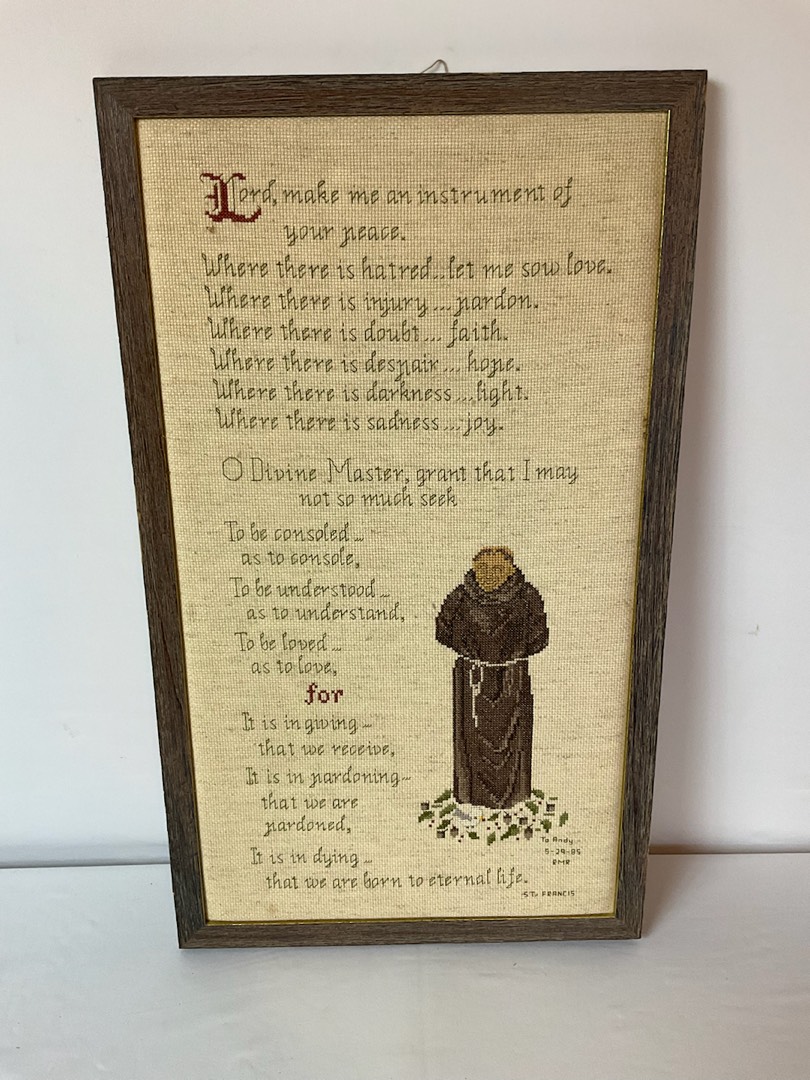 Lord, make me an instrument of
your peace.
Where there is hatred...let me sow love.
Where there is injury...pardon.
Where there is doubt... faith.
Where there is despair... hope.
Where there is darkness...light.
Where there is sadness...joy.
O Divine Master, grant that I may
not so much seek
To be consoled...
as to console,
To be understood...
as to understand,
To be loved...
as to love,
for
It is in giving...
that we receive,
It is in pardoning...
that we are
pardoned,
It is in dying...
that we are born to eternal life.
To Andy...
5-29-85
RMR
ST. FRANCIS